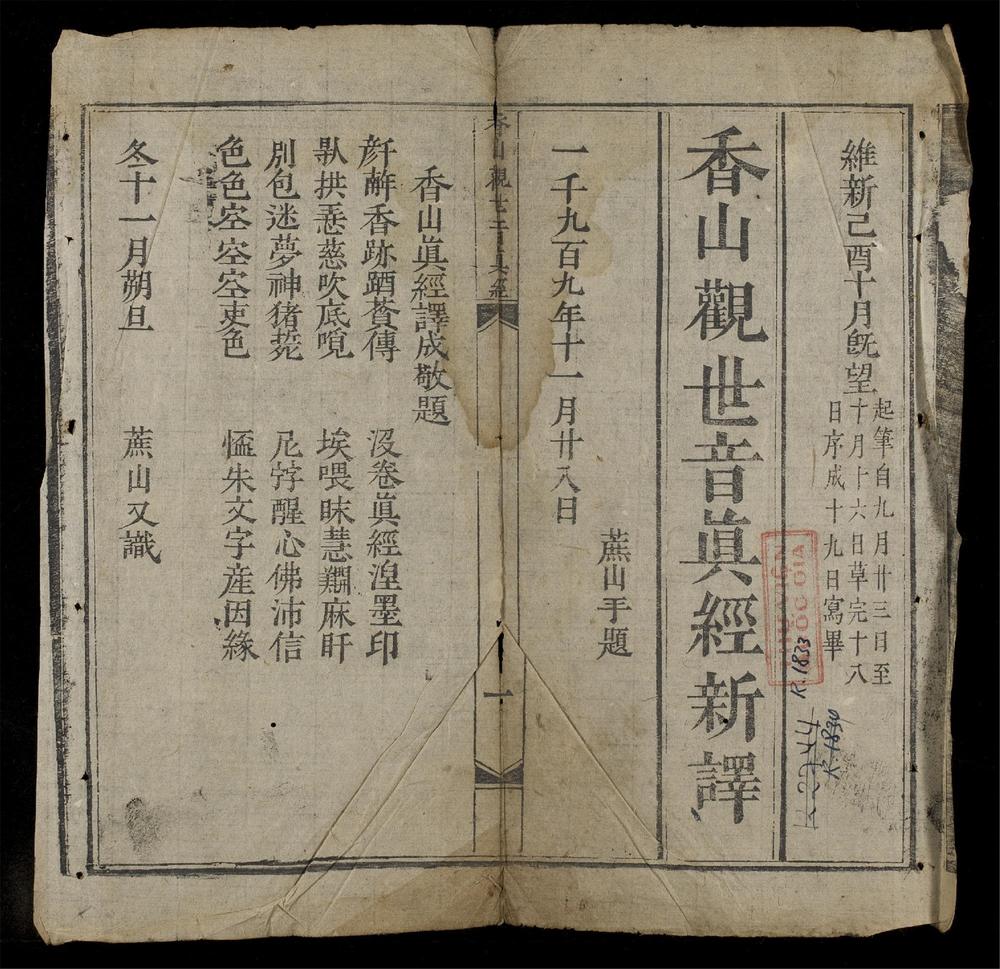 維新己酉十月旣望
起筆自九月廿三日至
十月十六日草完十八
日序成十九日寫畢
香山觀世音眞經新譯
蕉山手題
一千九百九年十一月廿八日
香山觀世音眞經
一
香山眞經譯成敬題
香跡𨁪薋傳
沒卷眞經湼墨印
拱㤅慈吹底
埃喂昧慧麻盱
別包迷夢神猪
尼醒心佛沛信
色色空空空吏色
㥺朱文字産因緣
冬十一月朔旦
蕉山又識
QUOC GIA
R.1833
R.1830